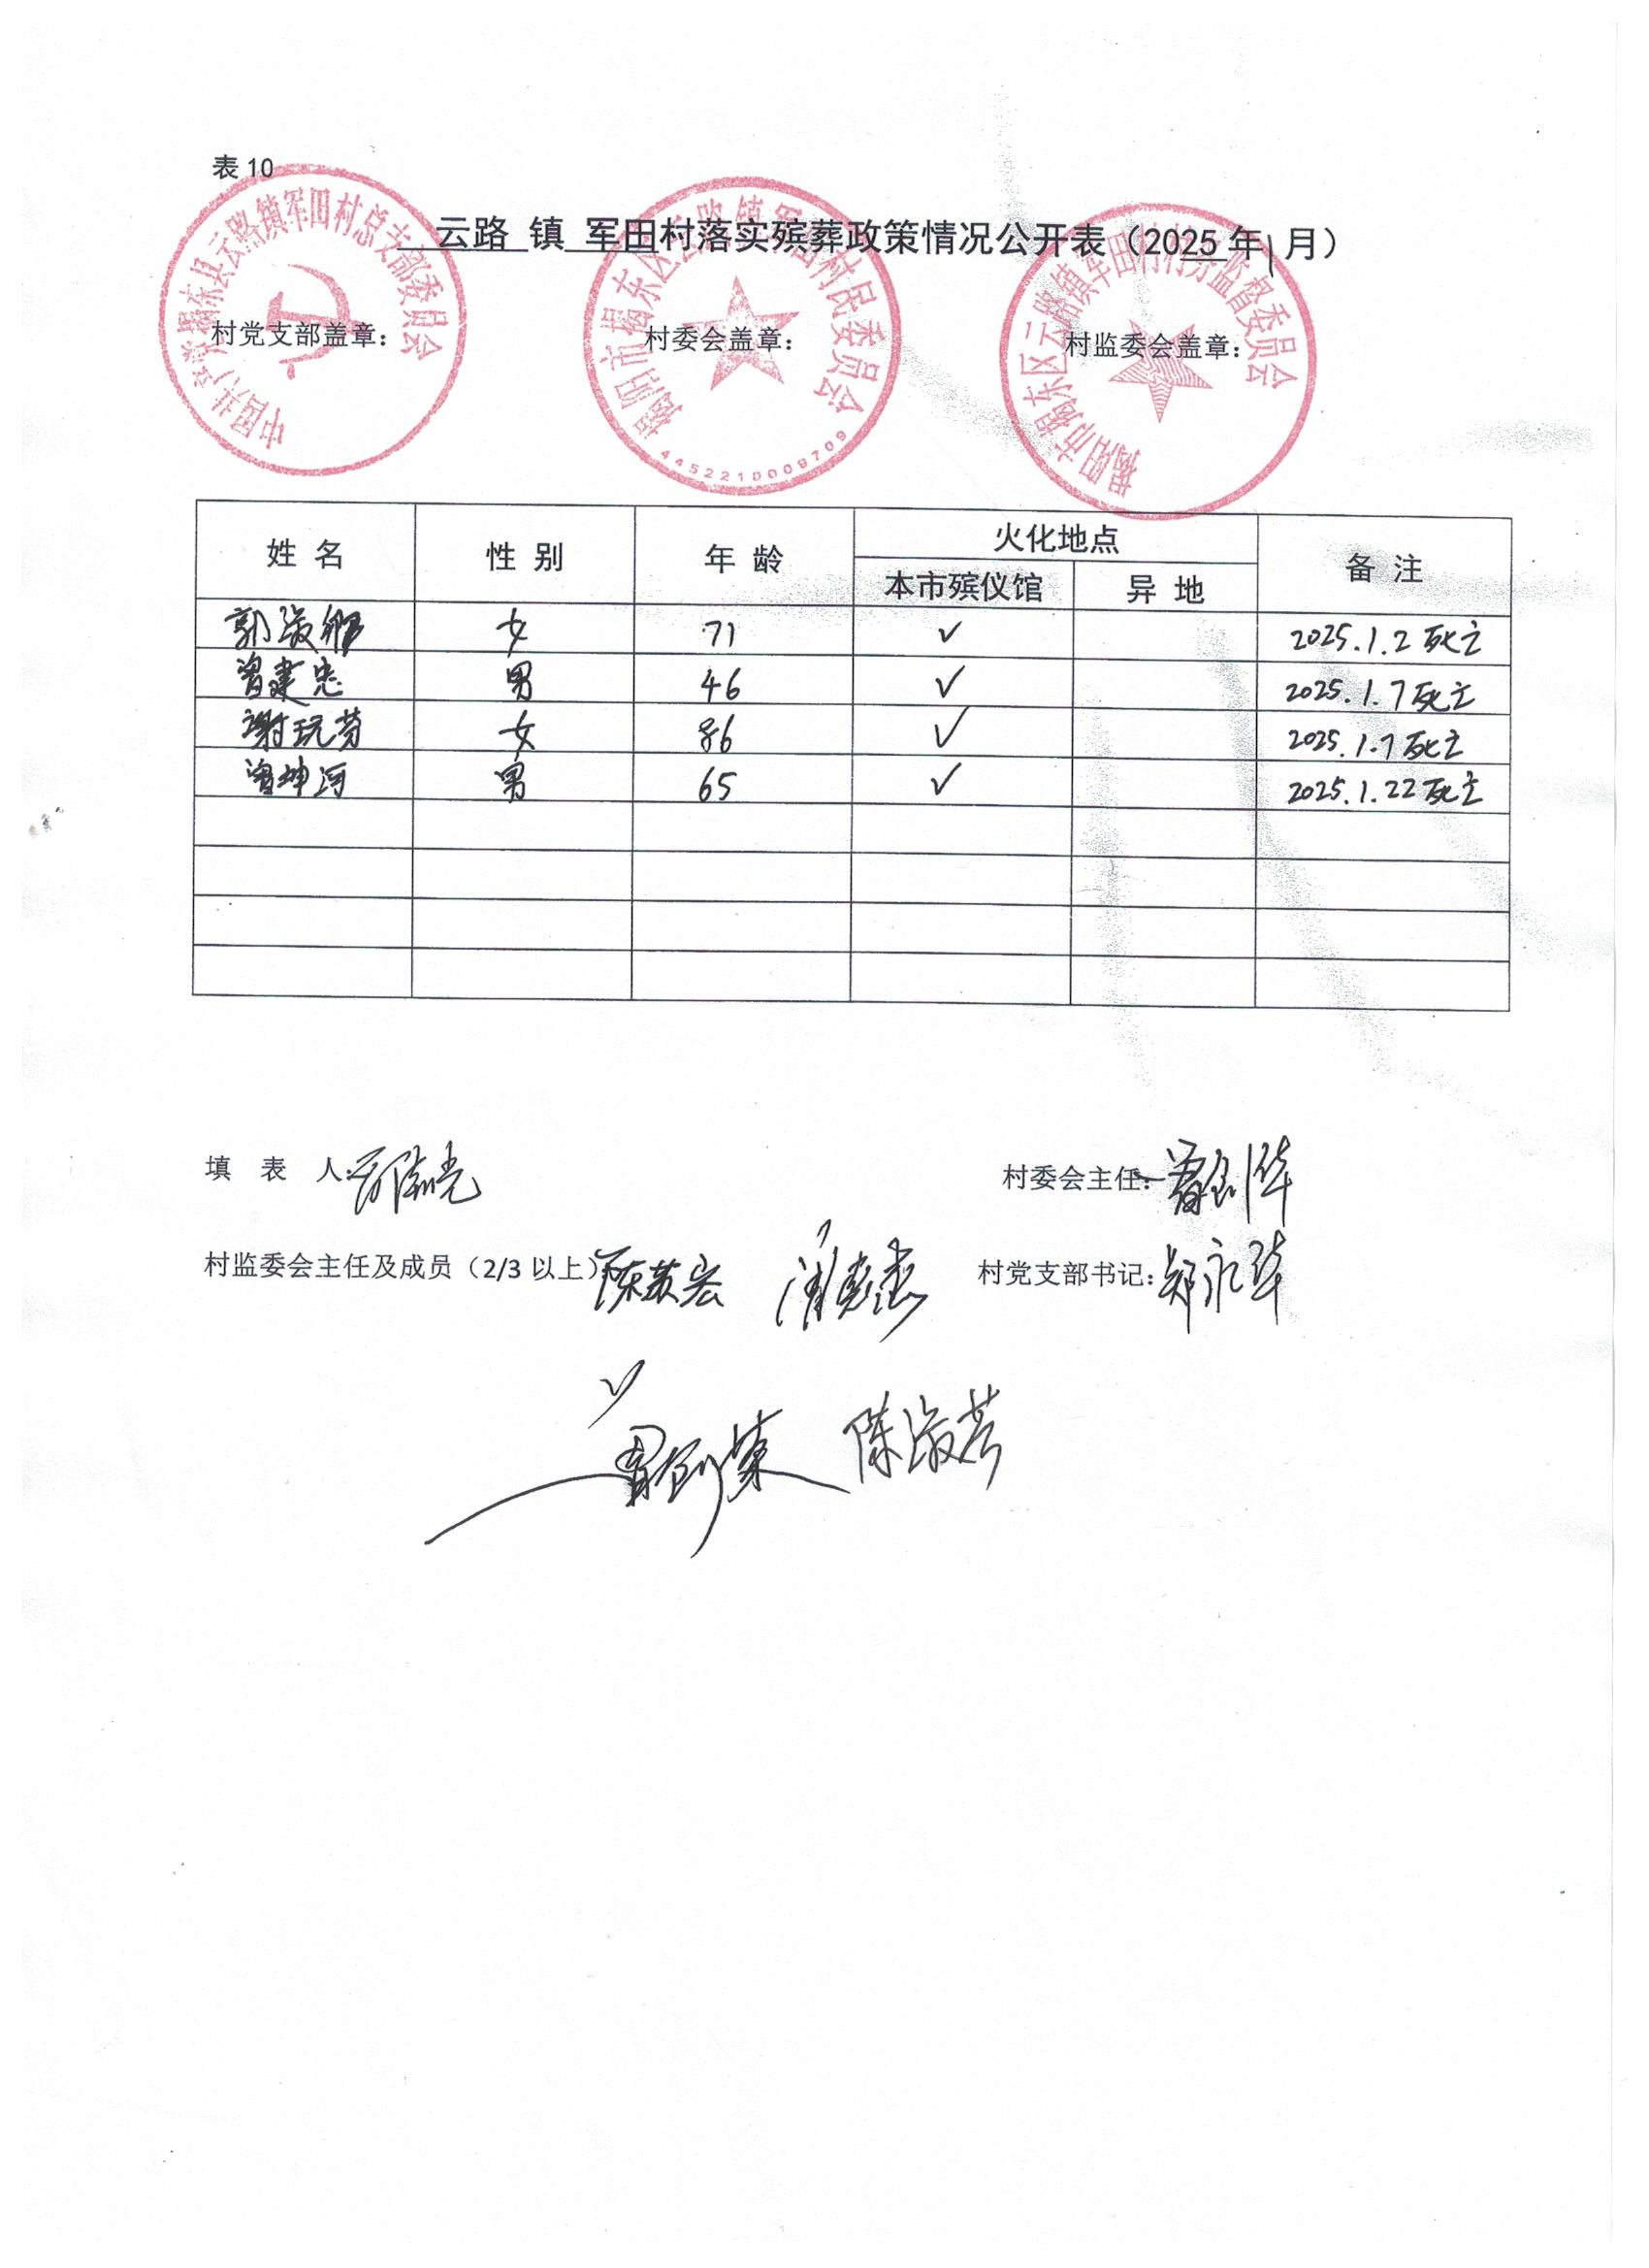 表 10
云路 镇 军田村落实殡葬政策情况公开表（2025 年1月）
中国共产党揭东县云路镇军田村总支部委员会
揭阳市揭东区云路镇军田村民委员会
4452210009709
揭阳市揭东区云路镇军田村村务监督委员会
村党支部盖章： 村委会盖章： 村监委会盖章：
姓 名 性 别 年 龄 火化地点 备 注
本市殡仪馆 异 地
郭淑卿 女 71 ✓ 2025.1.2 死亡
曾建忠 男 46 ✓ 2025.1.7 死亡
谢玩芳 女 86 ✓ 2025.1.7 死亡
曾坤河 男 65 ✓ 2025.1.22 死亡
填 表 人： 村委会主任：曾剑华
村监委会主任及成员（2/3 以上） 村党支部书记：郑永华
陈淑芳